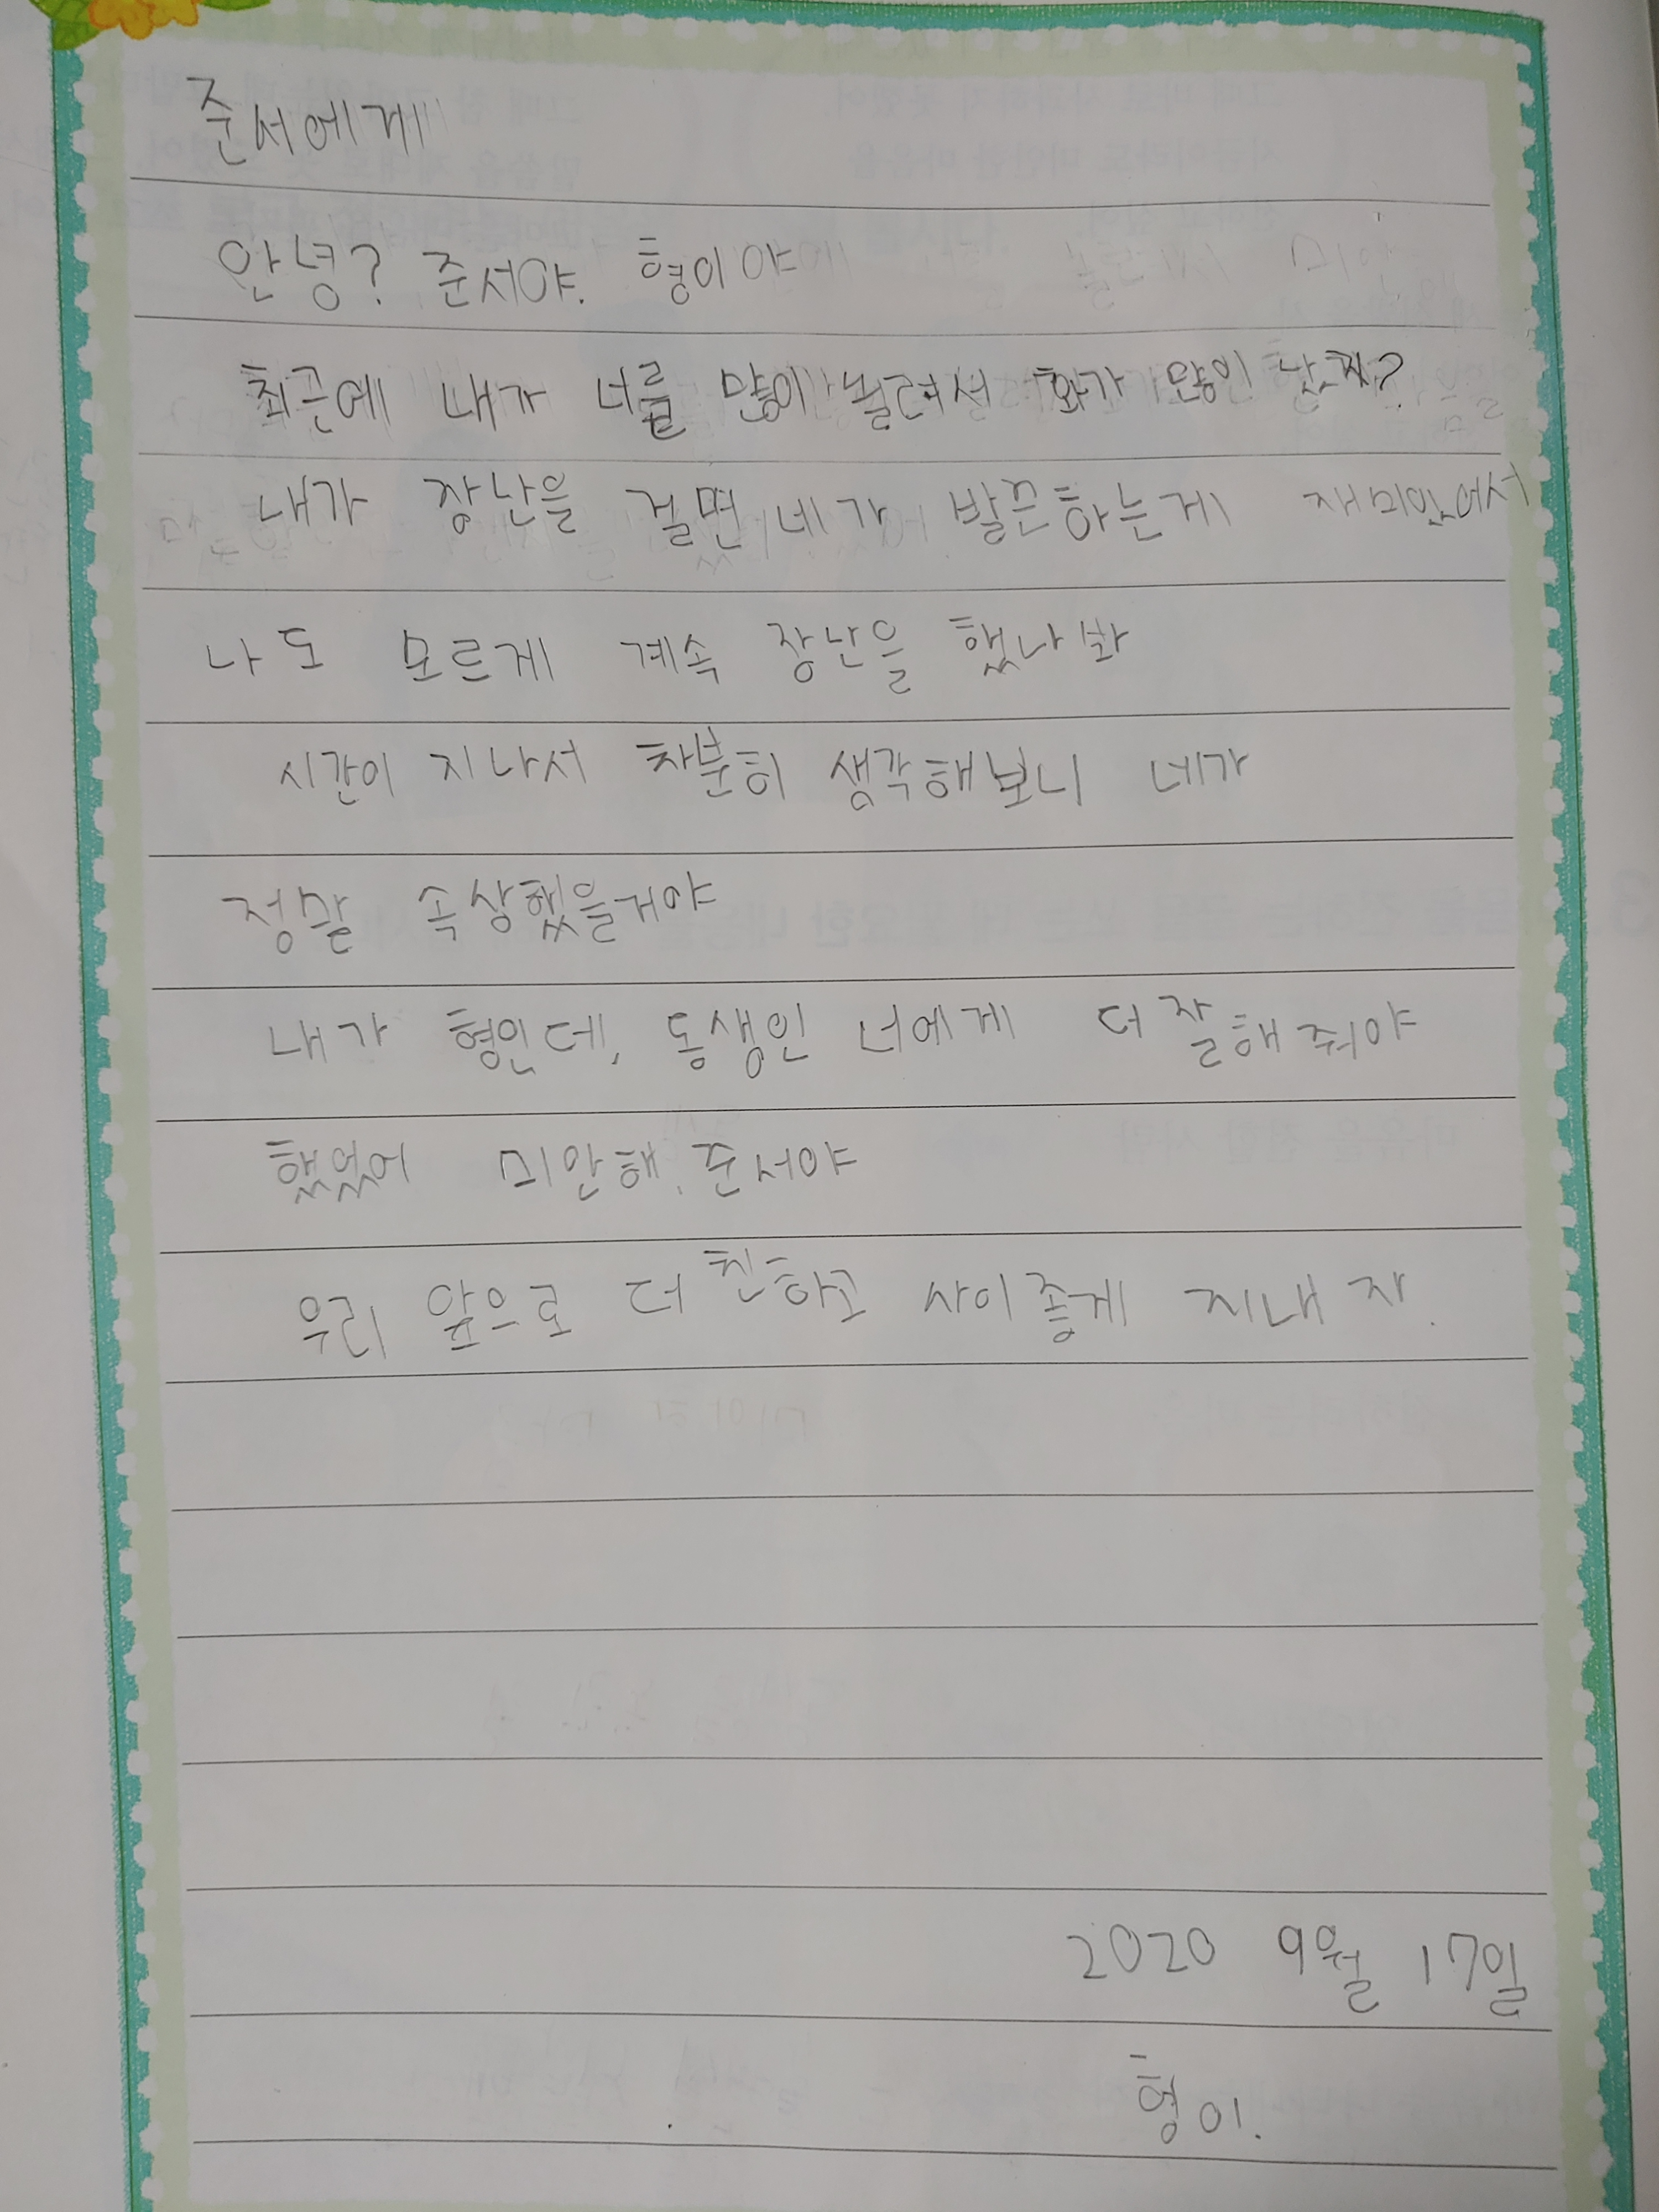 준서에게
안녕? 준서야. 형이야
최근에 내가 너를 많이 놀려서 화가 많이 났지?
내가 장난을 걸면 네가 발끈하는게 재미있어서
나도 모르게 계속 장난을 했나봐
시간이 지나서 차분히 생각해보니 네가
정말 속상했을거야
내가 형인데, 동생인 너에게 더 잘해줘야
했었어 미안해. 준서야
우리 앞으로 더 친하고 사이좋게 지내자.
2020 9월 17일
형이.